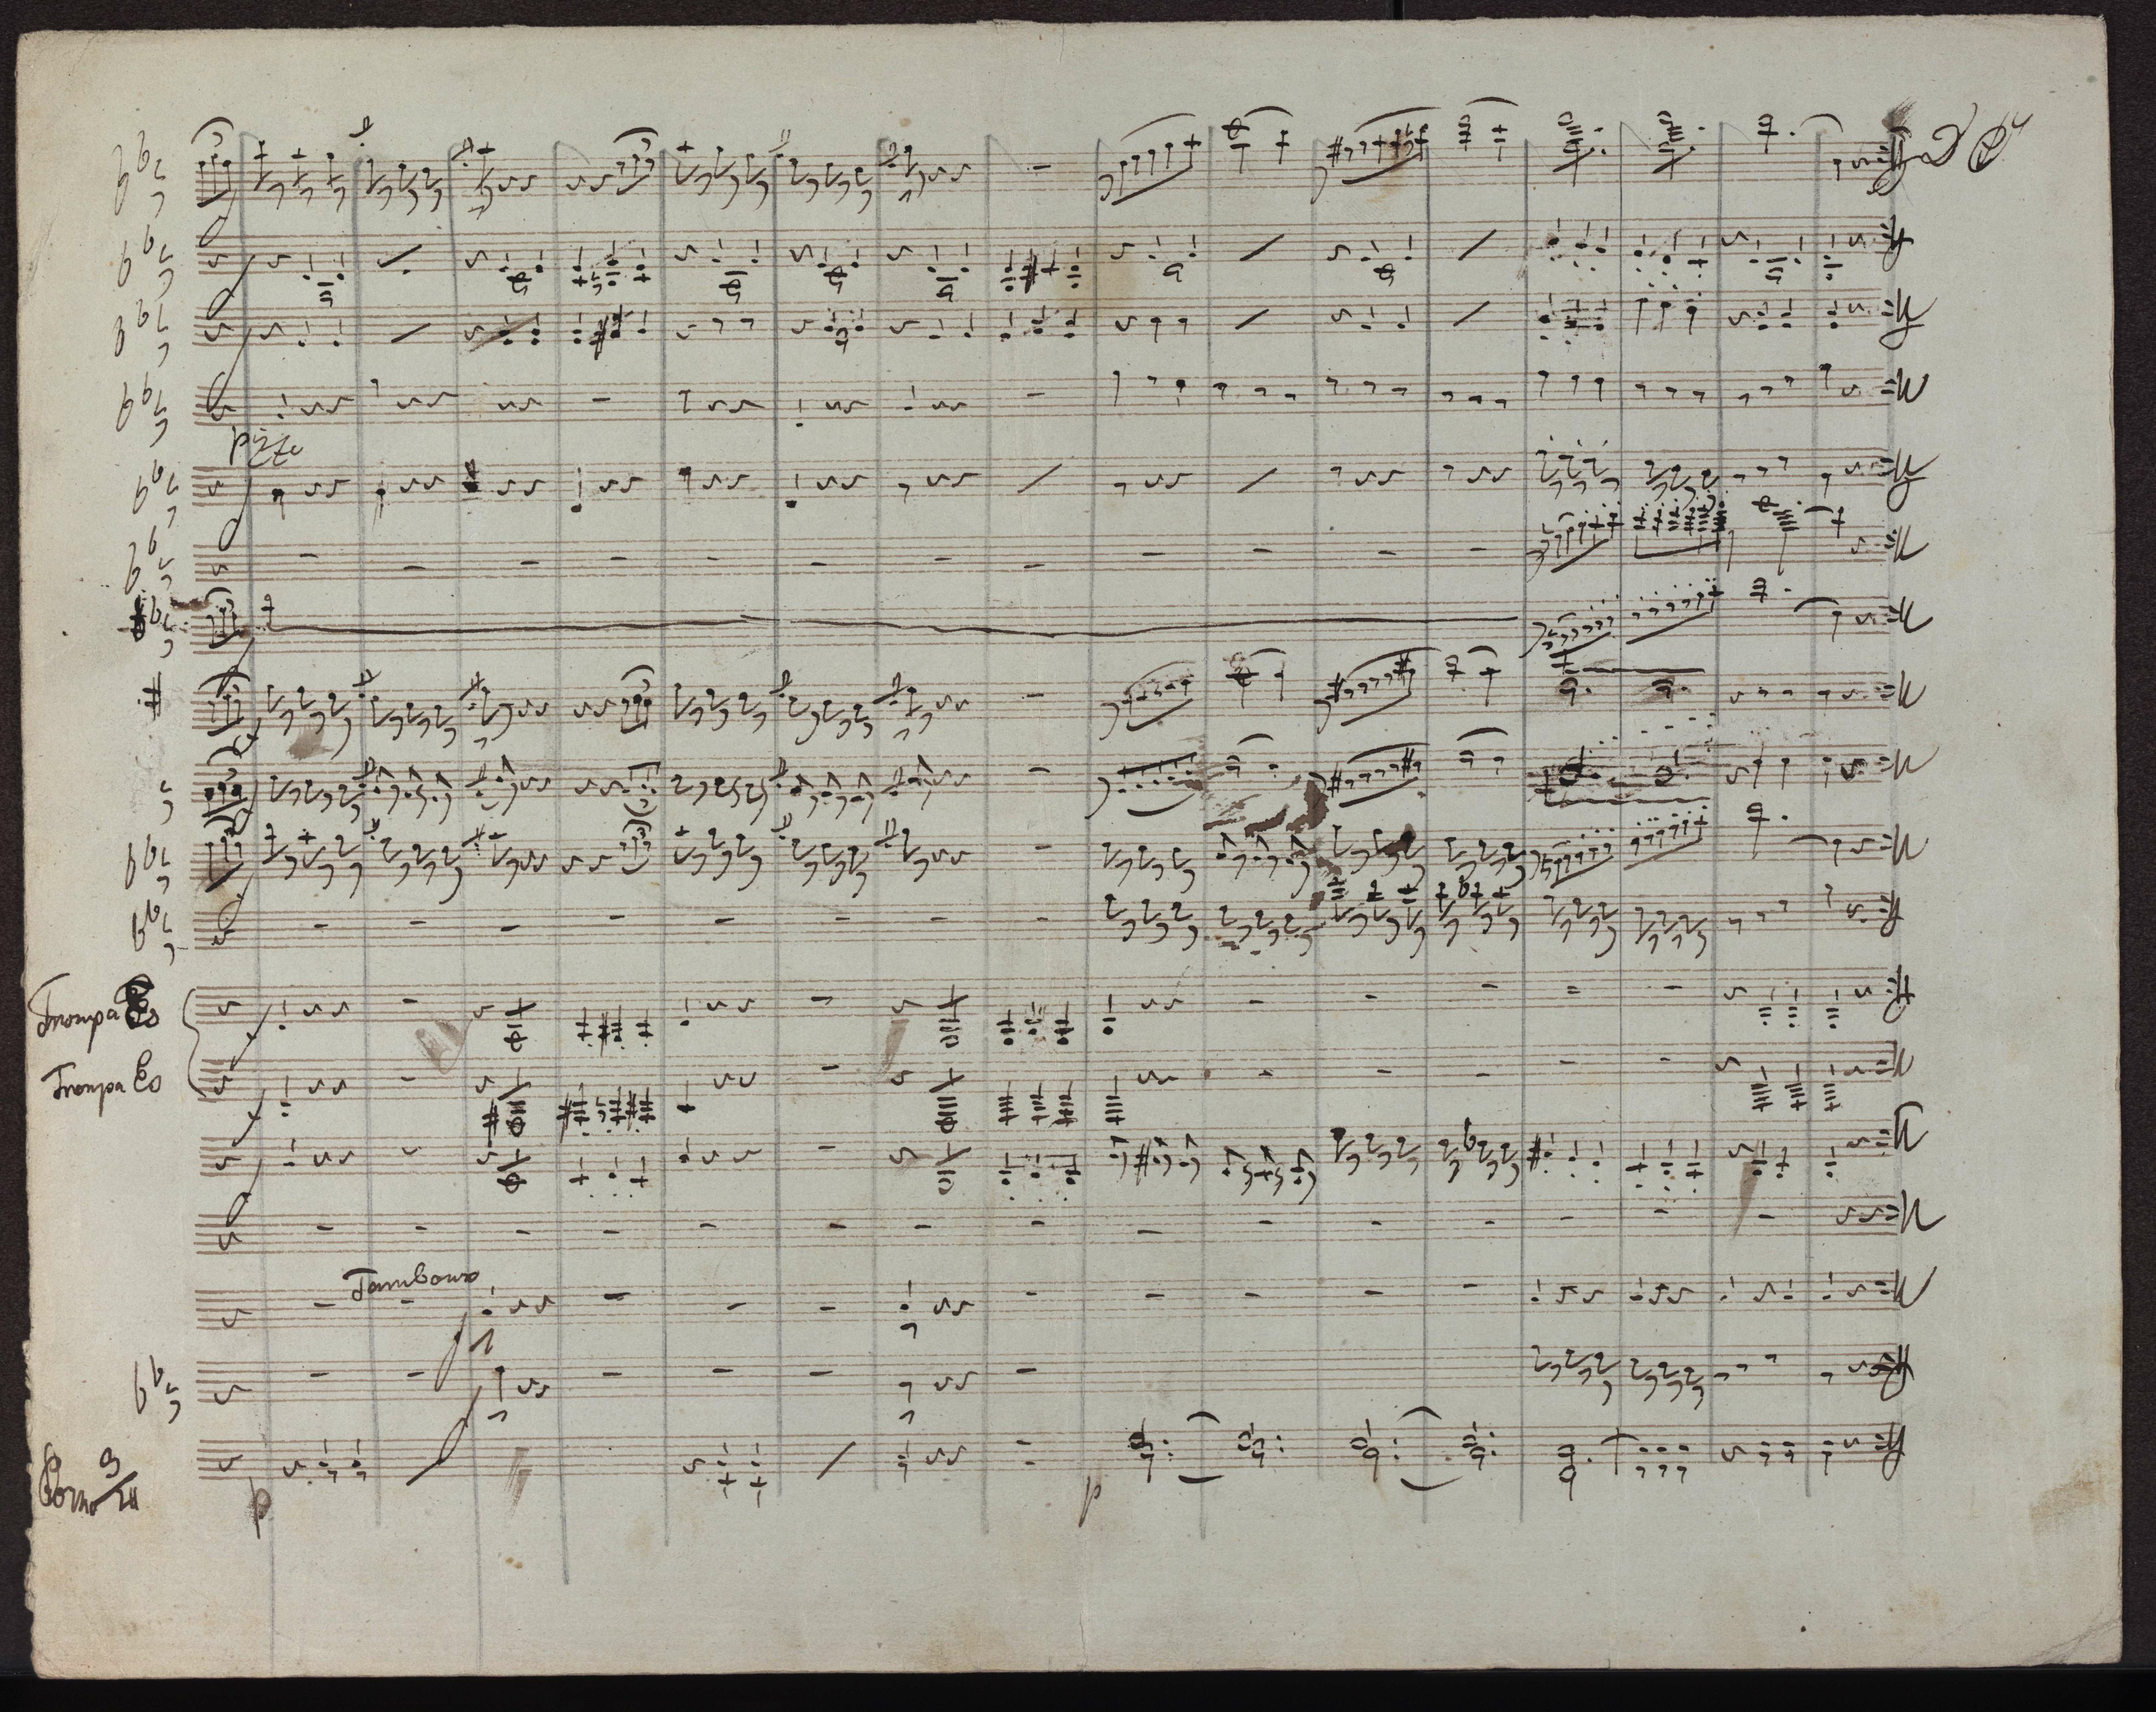 pizz
Trompa Es
Trompa Es
Tambour
p
p
Corno 3/4